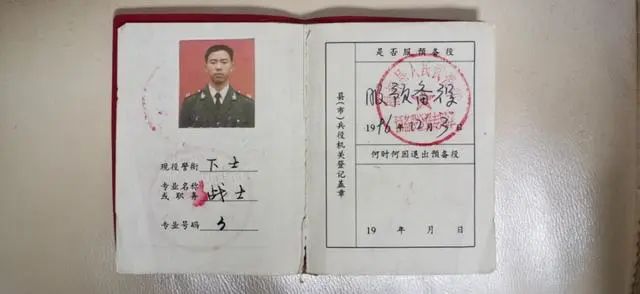 现役警衔 下士
专业名称
或职务 战士
专业号码
是否服预备役
服预备役
1996年12月
何时何因退出预备役
19 年 月 日
县(市)兵役机关登记盖章